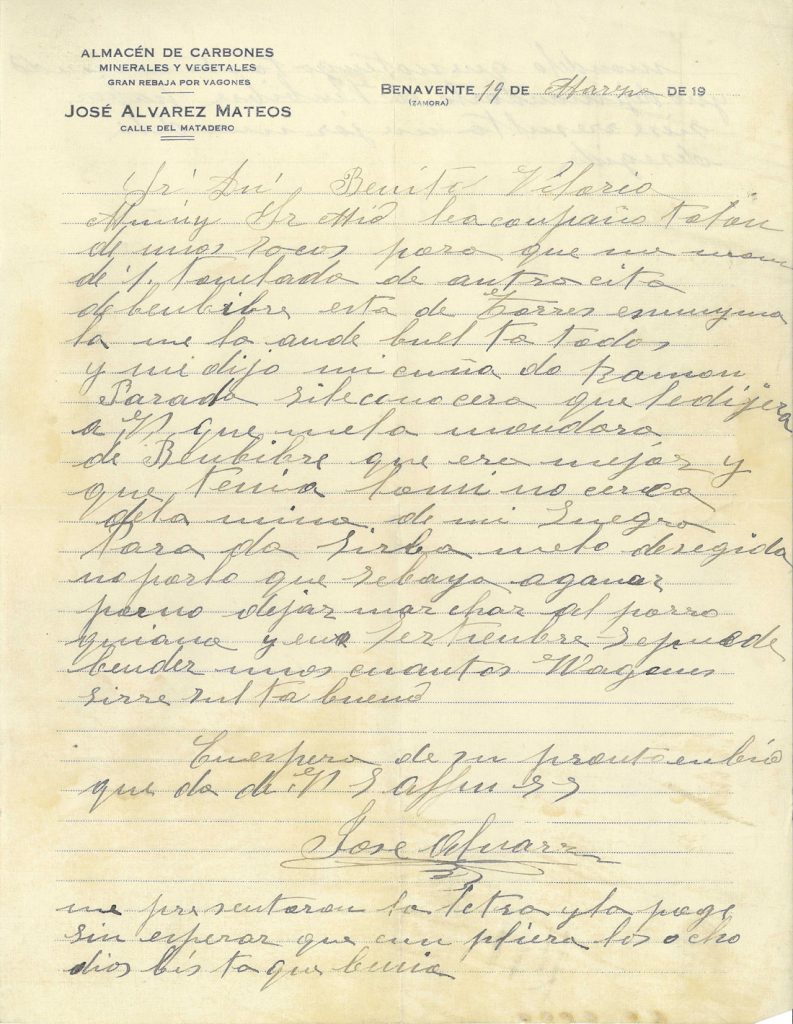 ALMACÉN DE CARBONES
MINERALES Y VEGETALES
GRAN REBAJA POR VAGONES
JOSÉ ALVAREZ MATEOS
CALLE DEL MATADERO
BENAVENTE 19 DE Marzo DE 19
(ZAMORA)
Sr Dn Benito Vitorio
Muuy Sr Mio leaconpaño talon
de unos sacos para que me man
de 1. tonelada de antracita
debenbibre esta de Torres esmuyma
la me la ande buelta todos
y me dijo mi cuña do Ramon
Parada sileconocera que ledijera
a V que mela mandara
de Benbibre que era mejor y
que tenia lamina cerca
dela mina de mi Suegro
Para da Sirba mela desegida
no porlo que sebaya aganar
porno dejar marchar al parro
quiano y en Sertienbre sepuede
bender unos cuantos Wagones
sirre sulta bueno
En espera de su pronto enbio
que da de V S Affmo SS
Jose Alvarez
me presentaron la letra yla page
sin esperar que cun pliera los ocho
dias bista que benia